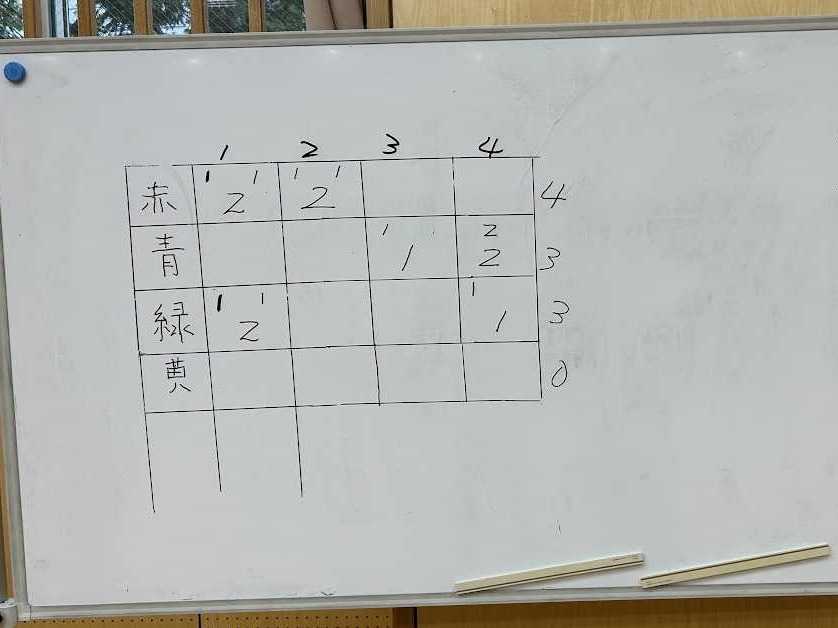 1 2 3 4
赤 1 1 2 1 1 2 4
青 1 1 2 2 3
緑 1 1 2 1 1 3
黄 0